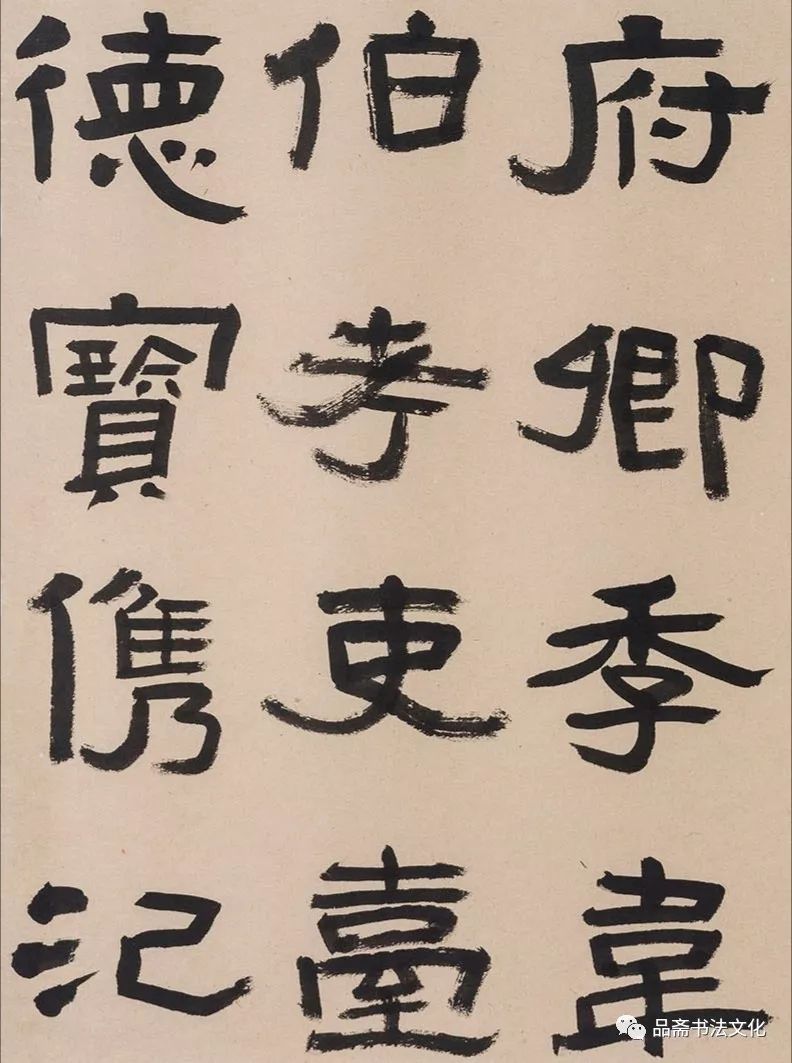 府卿季韋
伯考吏臺
德寶儁汜
品斋书法文化